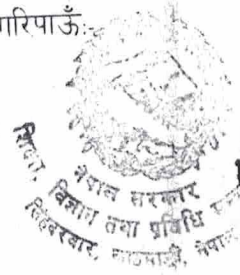 गरिपाऊँ:-
नेपाल सरकार
शिक्षा, विज्ञान तथा प्रविधि
सिंहदरबार, काठमाडौं, नेपाल